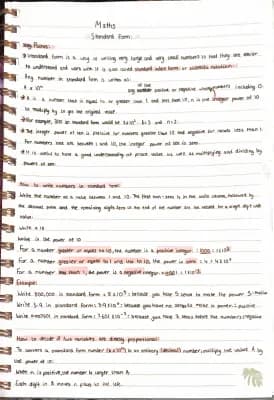 Maths
Standard Form
Key Points:
Standard form is a way of writing very large and very small numbers so that they are easier
to understand and work with. It is also called standard index form or scientific notation.
Any number in standard form is written as:
A x 10ⁿ
A is a number that is equal to or greater than 1 and less than 10, n is the integer power of 10
to multiply by to get the original result.
For example, 300 in standard form would be 3 x 10² A=3 and n=2.
The integer power of ten is positive for numbers greater than 10 and negative for numbers less than 1.
For numbers that are between 1 and 10, the integer power of ten is zero.
It is useful to have a good understanding of place value as well as multiplying and dividing by
powers of ten.
How to write numbers in standard form:
Write the number as a value between 1 and 10. The first non-zero is in the units column, followed by
the decimal point and the remaining digits. Zeros at the end of the number are not needed for a single digit unit
value.
Write x 10
Write in the power of 10
For a number greater or equal to 10, the number is a positive integer:
For a number greater or equal to 1 and less than 10, the power is zero:
For a number less than 1, the power is a negative integer:
Example:
Write 800,000 in standard form = 8 x 10⁵ : because you have 5 zeros to make the power 5
Write 3.9 in standard form: 3.9 x 10⁰ : because you have no
in standard form:
How to decide if two variables are directly proportional:
To convert a standard form number (A x 10ⁿ) to an ordinary (decimal) number, multiply the value A by
the power of 10:
When n is positive, the number is larger than A
Each digit in A moves n places to the left.